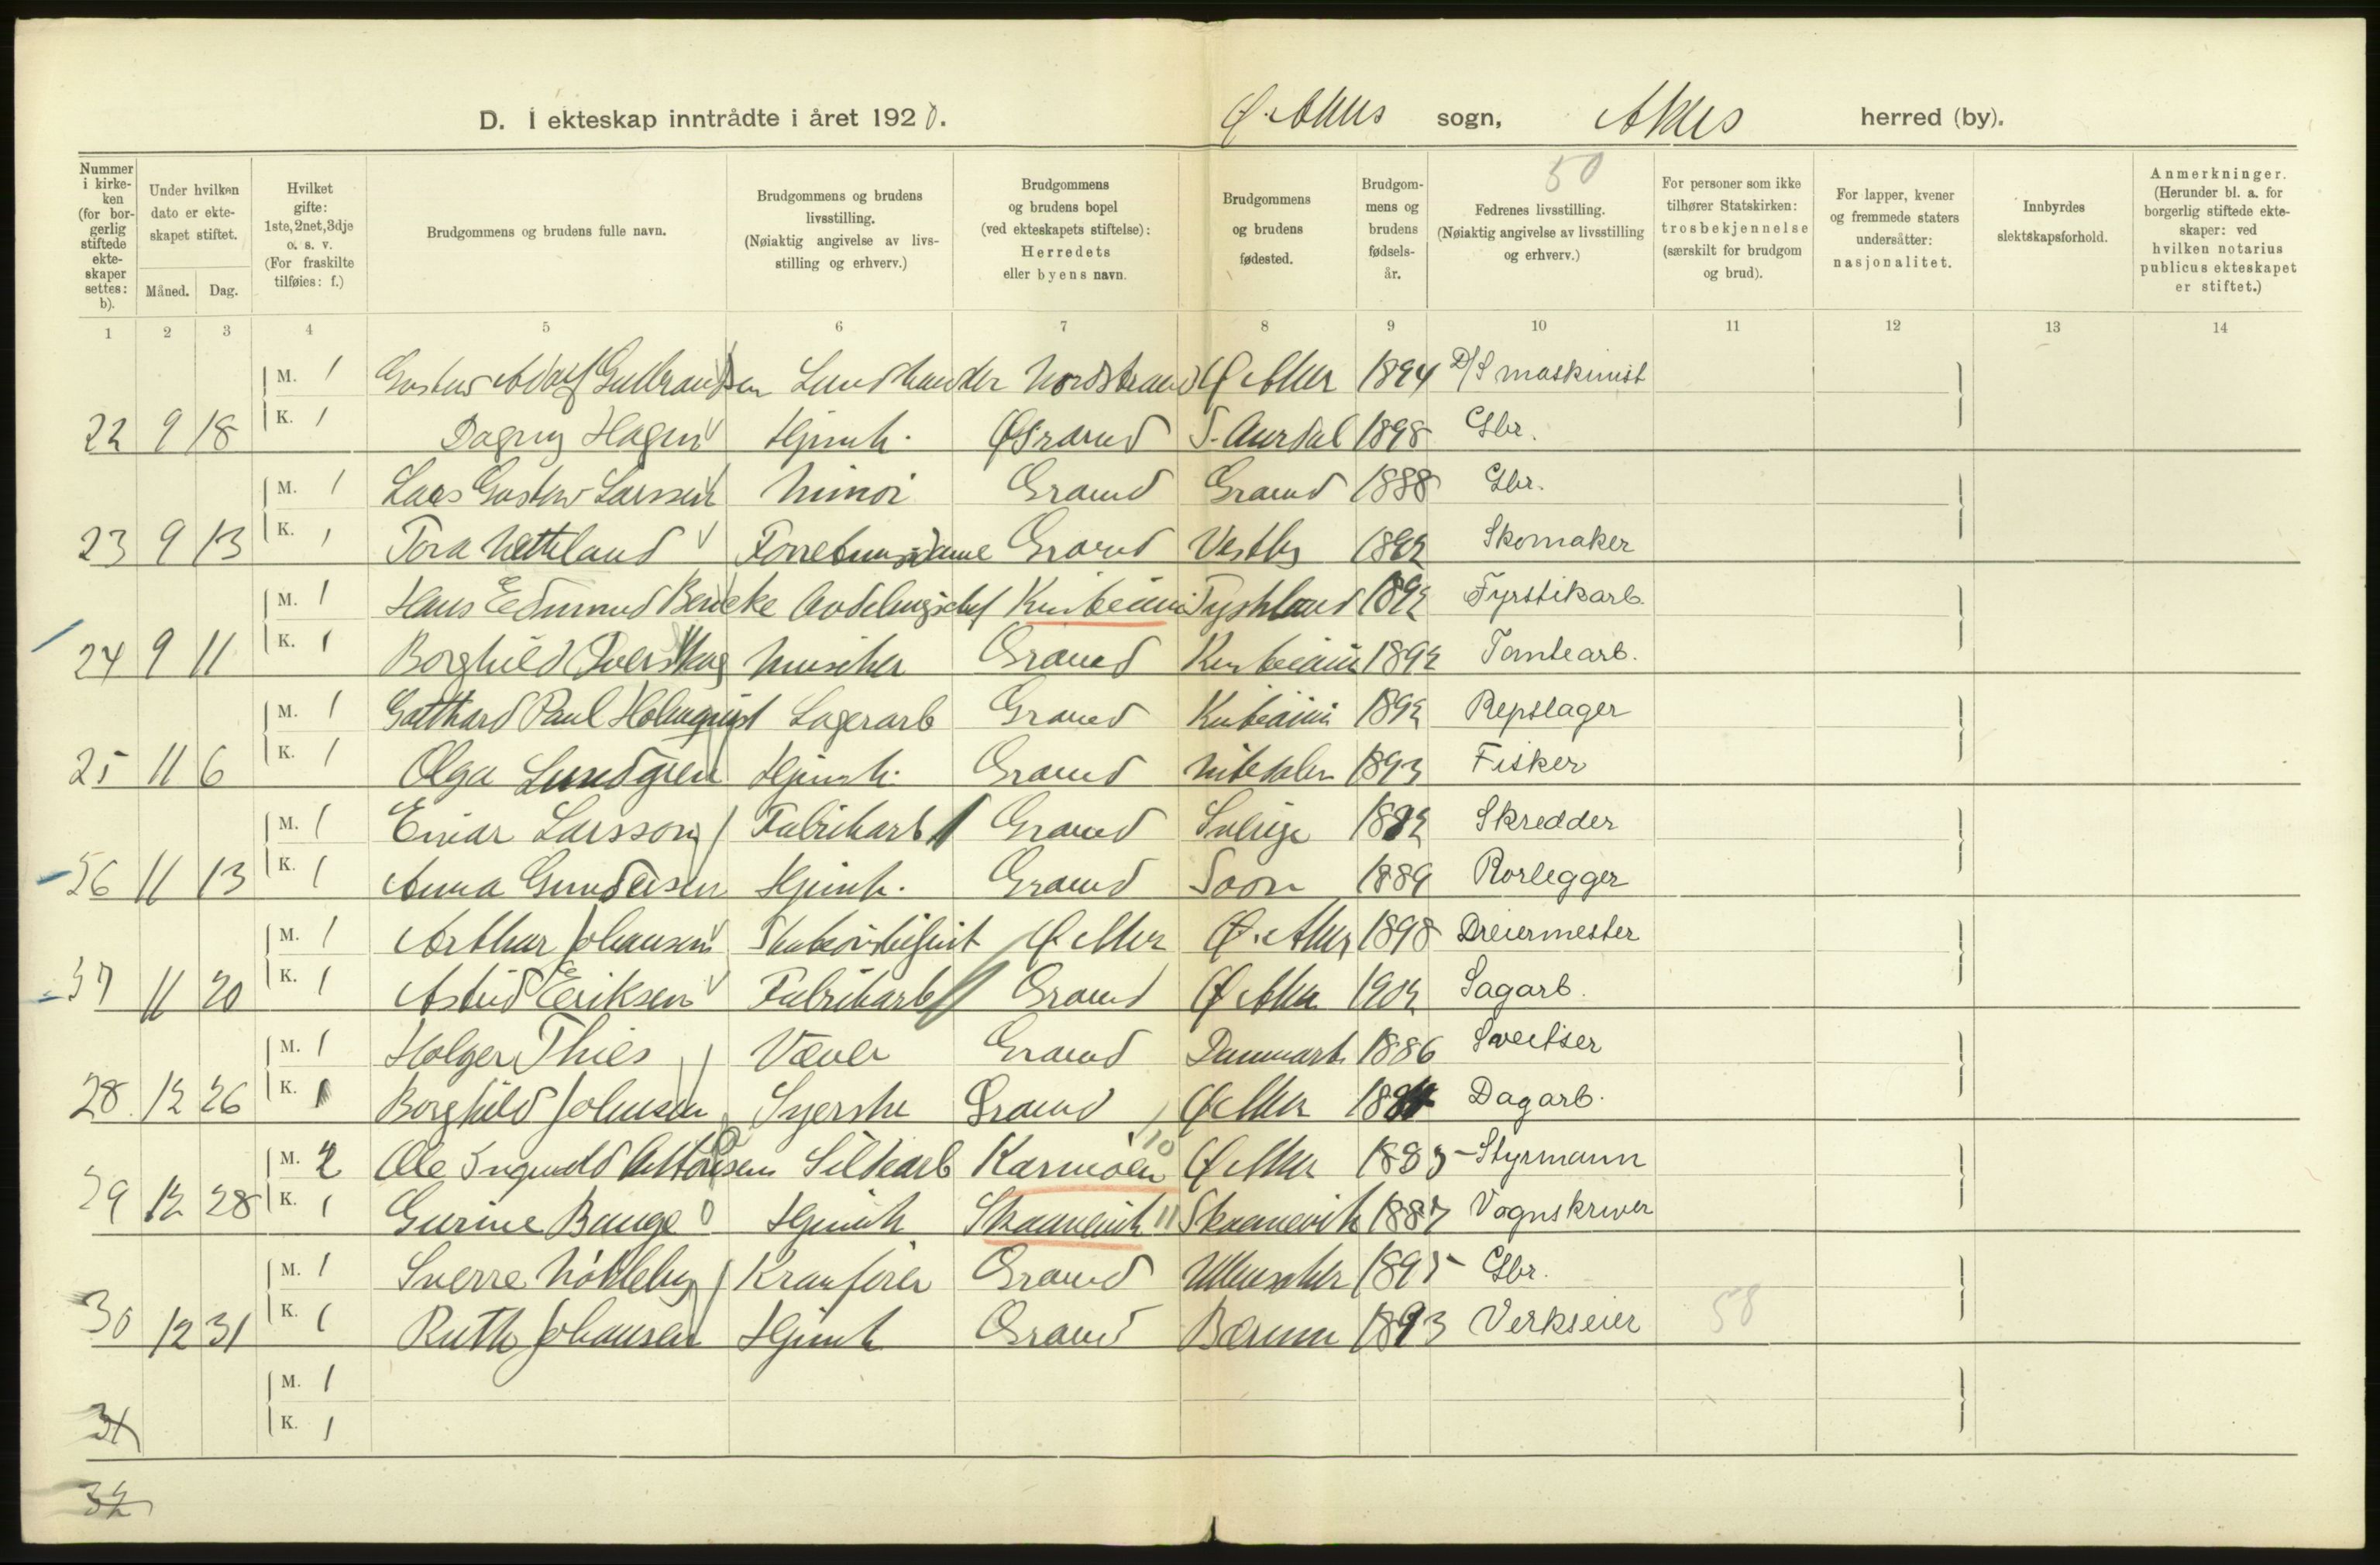 D. I ekteskap inntrådte i året 1920. Ø. Aker sogn, Aker herred (by).
50
Nummer i kirke-ken (for bor-gerlig stiftede ekte-skaper settes: b).
Under hvilken dato er ekte-skapet stiftet.
Måned. Dag.
Hvilket gifte: 1ste, 2net, 3dje o. s. v. (For fraskilte tilføies: f.)
Brudgommens og brudens fulle navn.
Brudgommens og brudens livsstilling. (Nøiaktig angivelse av livs-stilling og erhverv.)
Brudgommens og brudens bopel (ved ekteskapets stiftelse): Herredets eller byens navn.
Brudgommens og brudens fødested.
Brudgom-mens og brudens fødsels-år.
Fedrenes livsstilling. (Nøiaktig angivelse av livsstilling og erhverv.)
For personer som ikke tilhører Statskirken: trosbekjennelse (særskilt for brudgom og brud).
For lapper, kvener og fremmede staters undersåtter: nasjonalitet.
Innbyrdes slektskapsforhold.
Anmerkninger. (Herunder bl. a. for borgerlig stiftede ekte-skaper: ved hvilken notarius publicus ekteskapet er stiftet.)
1 2 3 4 5 6 7 8 9 10 11 12 13 14
M. 1 Gustav Adolf Gulbrandsen Nordstrand Ø Aker 1894 D/S maskinist
22 9 18 K. 1 Dagny Hagen Hjemh. Ø Strand S. Aurdal 1898 Gbr.
M. 1 Lars Gustav Larssen Grorud Grorud 1888 Gbr.
23 9 13 K. 1 Tora Nettland Forretningsdame Grorud Vestby Skomaker
M. 1 Hans Edmund Bencke Avdelingschef Kristiania Tyskland 1892 Fyrstikarb.
24 9 11 K. 1 Borghild Overskog Grorud Kristiania 1892 Tomtearb.
M. 1 Gotthard Paul Holmquist Lagerarb Grorud Kristiania 1892 Repslager
25 11 6 K. 1 Olga Lundgren Hjemh. Grorud Nitedalen 1893 Fisker
M. 1 Einar Larsson Fabrikarb Grorud Sverige Skredder
26 11 13 K. 1 Anna Gundersen Hjemh. Grorud Soon 1889 Rorlegger
M. 1 Arthur Johansen Ø Aker Ø. Aker 1898 Dreiermester
27 11 20 K. 1 Astrid Eriksen Fabrikarb Grorud Ø Aker 1902 Sagarb.
M. 1 Holger Thies Væver Grorud Danmark 1886 Sveitser
28 12 26 K. 1 Borghild Johnsen Syerske Grorud Ø Aker Dagarb.
M. 2 Ole Ingvald Antonsen Sildearb Karmöen 10 Ø Aker 1885 Styrmann
29 12 28 K. 1 Gurine Bauge Hjemh Skaanevik 11 Skaanevik 1887 Vognskriver
M. 1 Sverre Nökleby Kranförer Grorud Ullensaker 1895 Gbr.
30 12 31 K. 1 Ruth Johansen Hjemh Grorud Bærum 1893 Verkseier 58
M. 1
31 K. 1
32